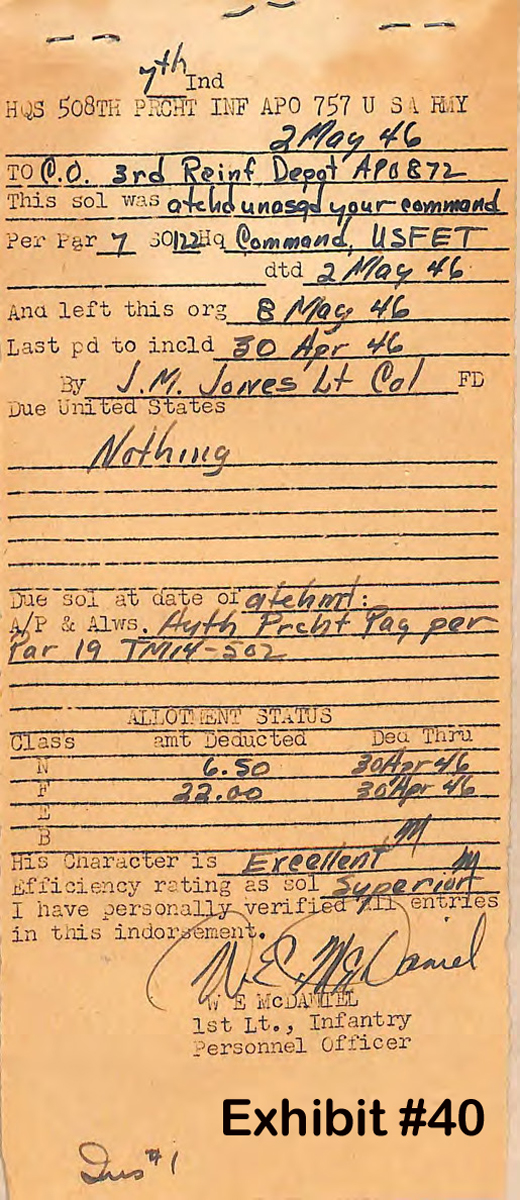 7th Ind
HQS 508TH PRCHT INF APO 757 U S ARMY
2 May 46
TO C.O. 3rd Reinf Depot APO 872
This sol was atchd unasgd your command
Per Par 7 SO 122 Hq Command, USFET
dtd 2 May 46
And left this org 8 May 46
Last pd to incld 30 Apr 46
By J.M. Jones Lt Col FD
Due United States
Nothing
Due sol at date of atchmt:
A/P & Alws. Auth Prcht Pay per
Par 19 TM14-502
ALLOTMENT STATUS
Class amt Deducted Ded Thru
N 6.50 30 Apr 46
F 22.00 30 Apr 46
E
B
His Character is Excellent
Efficiency rating as sol Superior
I have personally verified all entries
in this indorsement.
W.E. McDaniel
W E McDANIEL
1st Lt., Infantry
Personnel Officer
Exhibit #40
#1